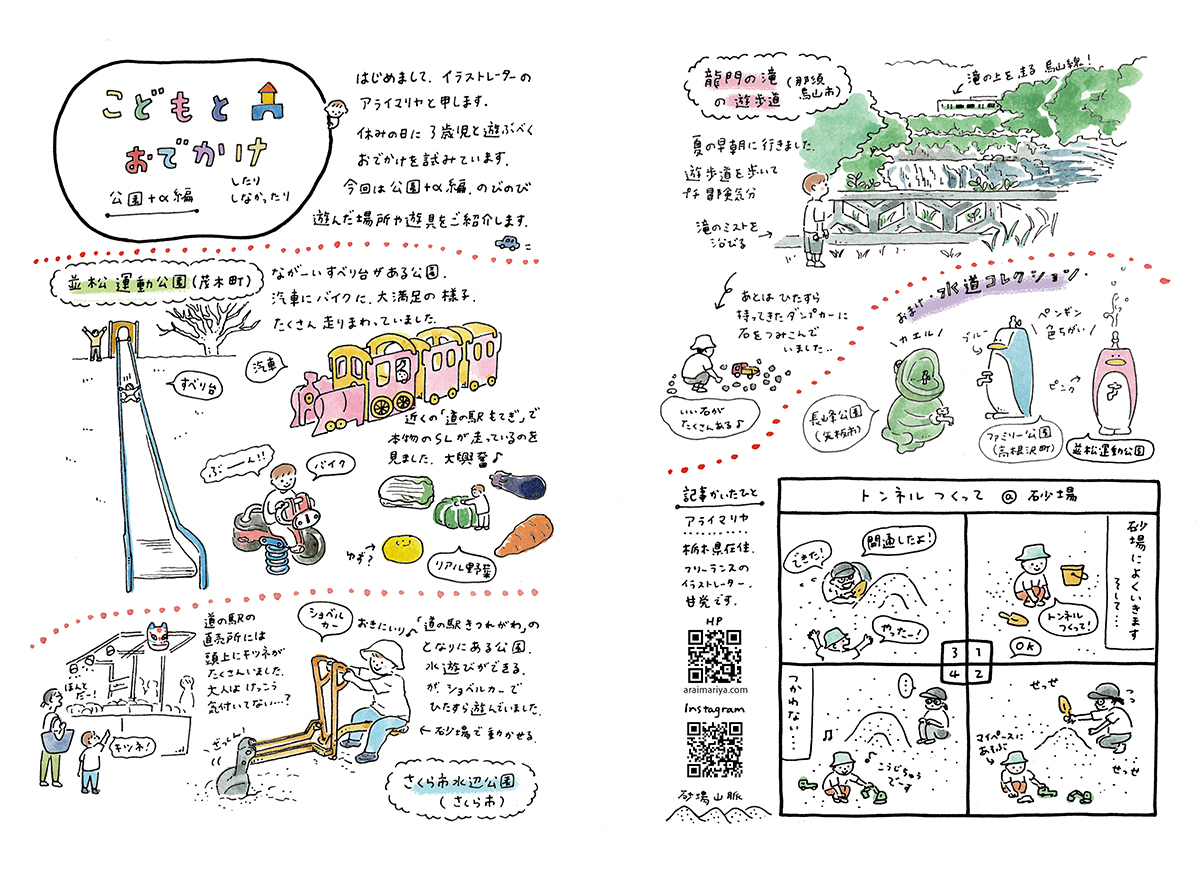 こどもと
おでかけ
したり
しなかったり
公園+α編
はじめまして、イラストレーターの
アライマリヤと申します。
休みの日に3歳児と遊ぶべく
おでかけを試みています。
今回は公園+α編。のびのび
遊んだ場所や遊具をご紹介します。
並松運動公園(茂木町)
ながーいすべり台がある公園。
汽車にバイクに、大満足の様子。
たくさん走りまわっていました。
すべり台
汽車
近くの「道の駅もてぎ」で
本物のSLが走っているのを
見ました。大興奮♪
ぶーーん!!
バイク
ゆず?
リアル野菜
道の駅の
直売所には
頭上にキツネが
たくさんいました。
大人はけっこう
気付いてない…?
ほんと
だー!
キツネ!
ショベル
カー
おきにいり♪
「道の駅きつれがわ」の
となりにある公園。
水遊びができる。
が、ショベルカーで
ひたすら遊んでいました。
←砂場で動かせる
ざっくん
さくら市水辺公園
(さくら市)
龍門の滝
の遊歩道
(那須
烏山市)
滝の上を走る烏山線!
夏の早朝に行きました。
遊歩道を歩いて
プチ冒険気分
滝のミストを
浴びる→
あとはひたすら
持ってきたダンプカーに
石をつみこんで
いました..
いい石が
たくさんある♪
おまけ・水道コレクション・
カエル
長峰公園
(矢板市)
ブルー
ペンギン
色ちがい
ピンク→
ファミリー公園
(高根沢町)
並松運動公園
記事かいたひと
アライマリヤ
栃木県在住。
フリーランスの
イラストレーター。
甘党です。
HP
araimariya.com
Instagram
砂場山脈
トンネルつくって@砂場
砂場によくいきます
そして…
トンネル
つくって!
OK
1
2
3
4
せっせ
せっ
せっせ
マイペースに
あそぶ
できた!
開通したよ!
やったー!
つかわない…
…
♪
こうじちゅう
でーす